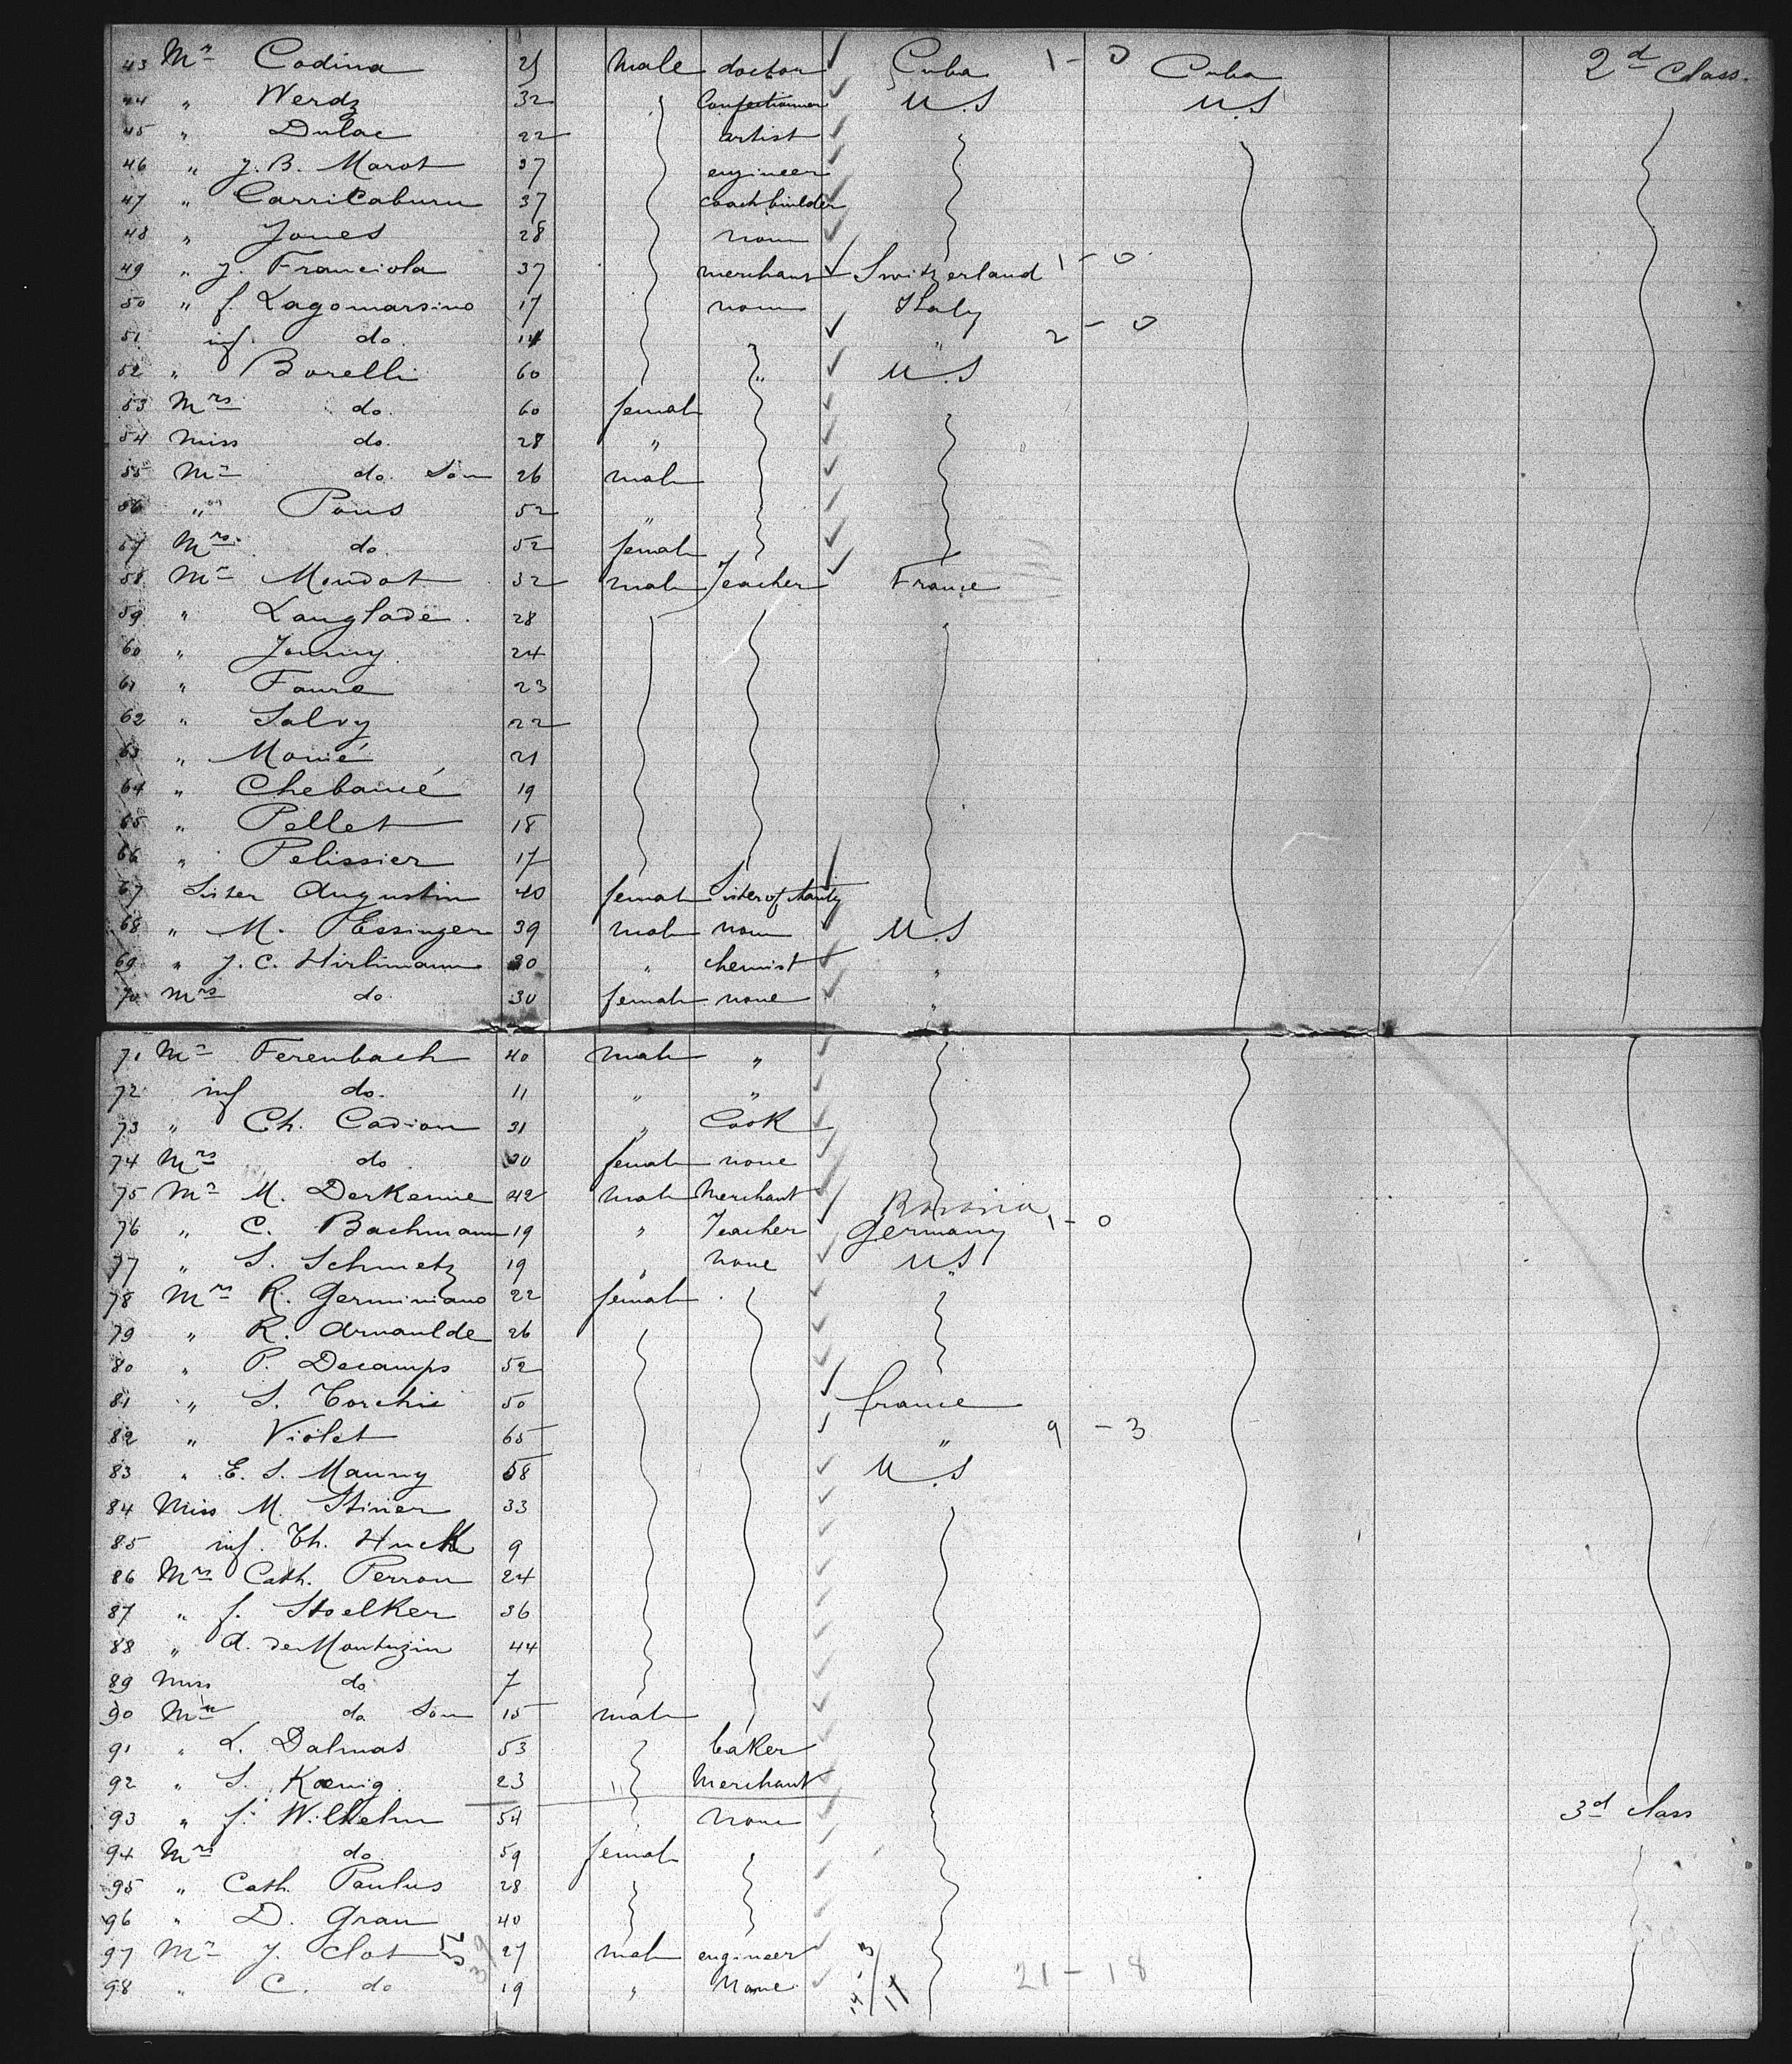 43 Mr Codina 25 male doctor Cuba 1 - 0 Cuba 2d Class.
44 " Werdz 32 Confectionner U.S U.S
45 " Dulac 22 artist
46 " J. B. Marot 37 engineer
47 " Carricaburu 37 coachbuilder
48 " Jones 28 none
49 " J. Franciola 37 merchant Switzerland 1 - 0
50 " f. Lagomarsino 17 none Italy
51 inf. do. 14 " 2 - 0
52 " Borelli 60 " U.S
53 Mrs do. 60 female
54 Miss do. 28 "
55 Mr do. Son 26 male
56 " Pons 52 "
57 Mrs. do. 52 female
58 Mr Mondot 32 male Teacher France
59 " Langlade. 28
60 " Jouny 24
61 " Faure 23
62 " Salvy 22
63 " Monié 21
64 " Chebancé 19
65 " Pellet 18
66 " Pelissier 17
67 Sister Augustin 40 female Sister of charity
68 " M. Essinger 39 male none U.S
69 " J. C. Hirlimann 30 " chemist "
70 Mrs do 30 female none "
71 Mr Ferenbach 40 male "
72 inf do. 11 " "
73 " Ch. Cadiou 31 " Cook
74 Mrs do. 30 female none
75 Mr M. Derkenne 42 male Merchant
76 " C. Bachmann 19 " Teacher Germany 1 - 0
77 " S. Schmetz 19 " none U.S
78 Mrs R. Germiniano 22 female "
79 " R. Arnaulde 26
80 " P. Decamps 52
81 " S. Torchi 50 france
82 " Violet 65 " 9 - 3
83 " E. S. Mauny 58 U.S
84 Miss M. Stiner 33
85 inf. Th. Huck 9
86 Mrs Cath. Perron 24
87 " f. Stoelker 36
88 " A. de Montuzin 44
89 Miss do 7
90 Mr do Son 15 male
91 " L. Dalmas 53 baker
92 " S. Kœnig. 23 " Merchant
93 " f. Wilhelm 54 none 3d class
94 Mrs do. 59 female
95 " Cath. Paulus 28
96 " D. Grau 40
97 Mr J. Clot 27 male engineer
98 " C. do 19 " None 21 - 18